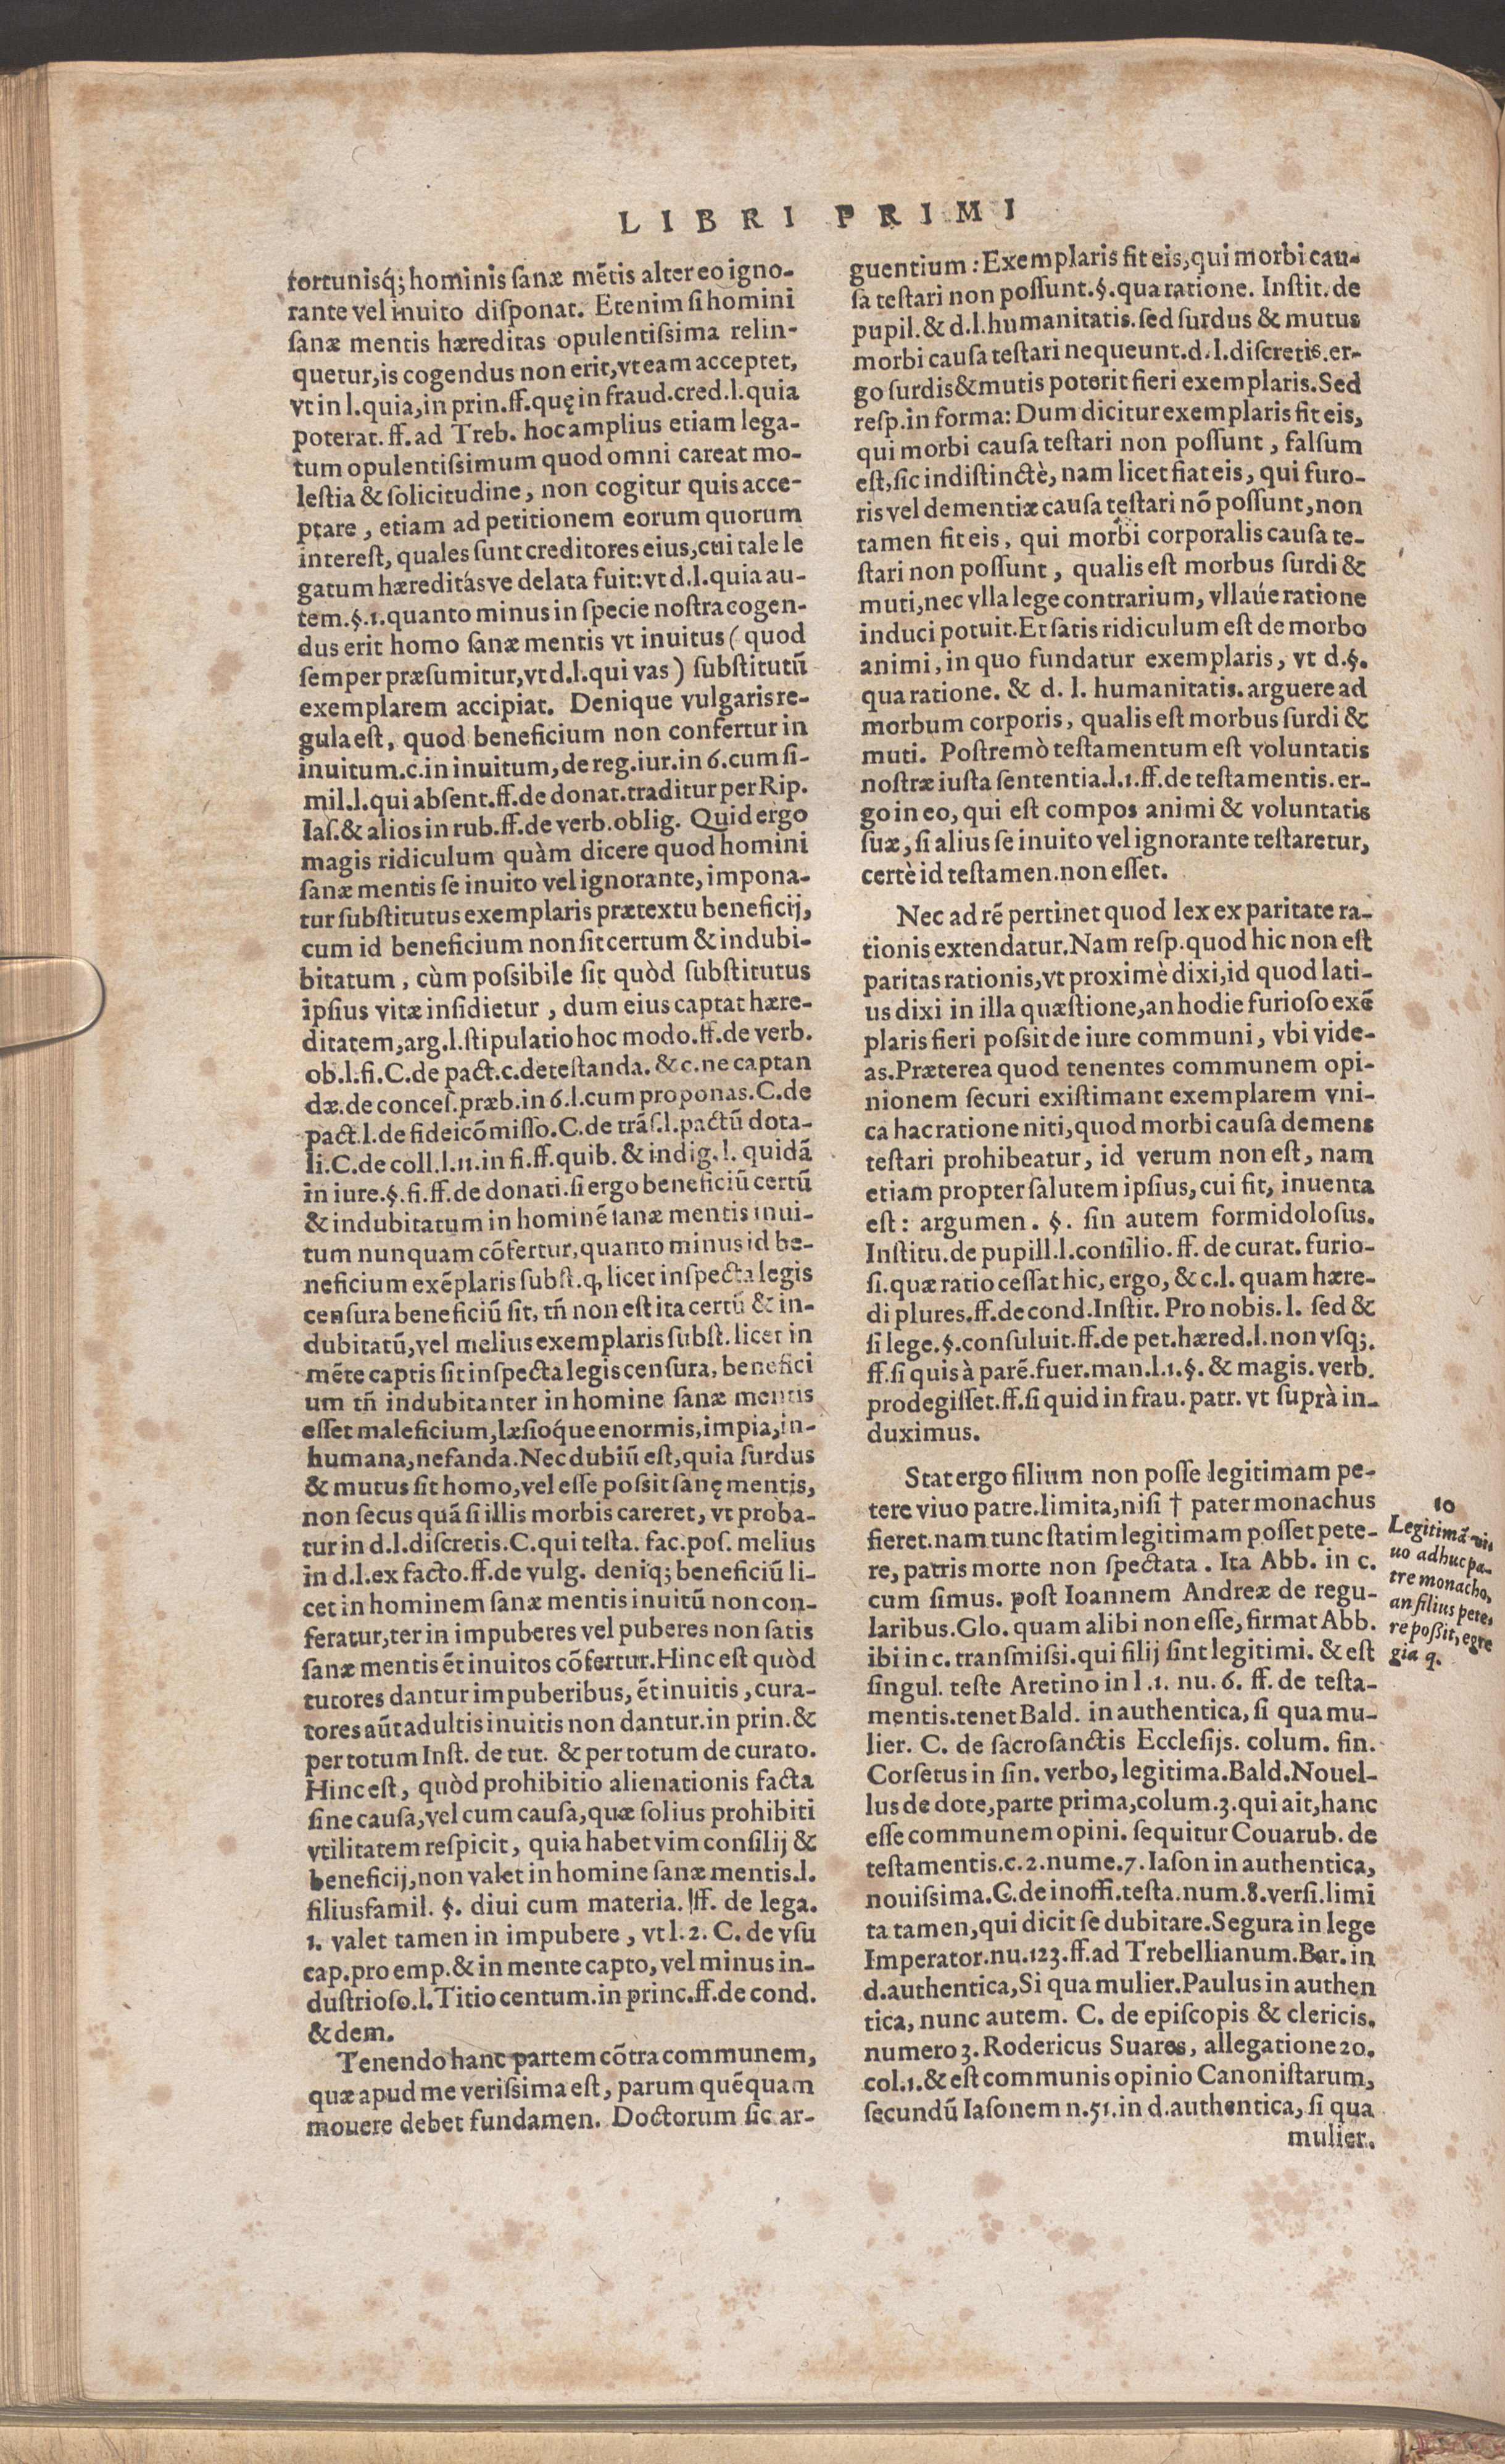 LIBRI PRIMI
fortunisq́; hominis ſanæ mẽtis alter eo igno-
rante vel inuito diſponat. Etenim ſi homini
ſanæ mentis hæreditas opulentiſsima relin-
quetur, is cogendus non erit, vt eam acceptet,
vt in l. quia, in prin. ff. quę in fraud. cred. l. quia
poterat. ff. ad Treb. hoc amplius etiam lega-
tum opulentiſsimum quod omni careat mo-
leſtia & ſolicitudine, non cogitur quis acce-
ptare, etiam ad petitionem eorum quorum
intereſt, quales ſunt creditores eius, cui tale le
gatum hæreditásve delata fuit: vt d. l. quia au-
tem. §. 1. quanto minus in ſpecie noſtra cogen-
dus erit homo ſanæ mentis vt inuitus (quod
ſemper præſumitur, vt d. l. qui vas) ſubſtitutũ
exemplarem accipiat. Denique vulgaris re-
gula eſt, quod beneficium non confertur in
inuitum. c. in inuitum, de reg. iur. in 6. cum ſi-
mil. l. qui abſent. ff. de donat. traditur per Rip.
Iaſ. & alios in rub. ff. de verb. oblig. Quid ergo
magis ridiculum quàm dicere quod homini
ſanæ mentis ſe inuito vel ignorante, impona-
tur ſubſtitutus exemplaris prætextu beneficij,
cum id beneficium non ſit certum & indubi-
bitatum, cùm poſsibile ſit quòd ſubſtitutus
ipſius vitæ inſidietur, dum eius captat hære-
ditatem, arg. l. ſtipulatio hoc modo. ff. de verb.
ob. l. fi. C. de pact. c. deteſtanda. & c. ne captan
dæ. de conceſ. præb. in 6. l. cum proponas. C. de
pact. l. de fideicõmiſſo. C. de trãſ. l. pactũ dota-
li. C. de coll. l. 11. in fi. ff. quib. & indig. l. quidã
in iure. §. fi. ff. de donati. ſi ergo beneficiũ certũ
& indubitatum in hominẽ ſanæ mentis inui-
tum nunquam cõfertur, quanto minus id be-
neficium exẽplaris ſubſt. q, licet inſpecta legis
cenſura beneficiũ ſit, tñ non eſt ita certũ & in-
dubitatũ, vel melius exemplaris ſubſt. licet in
mẽte captis ſit inſpecta legis cenſura, benefici
um tñ indubitanter in homine ſanæ mentis
eſſet maleficium, læſióque enormis, impia, in-
humana, nefanda. Nec dubiũ eſt, quia ſurdus
& mutus ſit homo, vel eſſe poſsit ſanę mentis,
non ſecus quã ſi illis morbis careret, vt proba-
tur in d. l. diſcretis. C. qui teſta. fac. poſ. melius
in d. l. ex facto. ff. de vulg. deniq; beneficiũ li-
cet in hominem ſanæ mentis inuitũ non con-
feratur, ter in impuberes vel puberes non ſatis
ſanæ mentis ẽt inuitos cõfertur. Hinc eſt quòd
tutores dantur impuberibus, ẽt inuitis, cura-
tores aũt adultis inuitis non dantur. in prin. &
per totum Inſt. de tut. & per totum de curato.
Hinc eſt, quòd prohibitio alienationis facta
ſine cauſa, vel cum cauſa, quæ ſolius prohibiti
vtilitatem reſpicit, quia habet vim conſilij &
beneficij, non valet in homine ſanæ mentis. l.
filiusfamil. §. diui cum materia. ff. de lega.
1. valet tamen in impubere, vt l. 2. C. de vſu
cap. pro emp. & in mente capto, vel minus in-
duſtrioſo. l. Titio centum. in princ. ff. de cond.
& dem.
Tenendo hanc partem cõtra communem,
quæ apud me veriſsima eſt, parum quẽquam
mouere debet fundamen. Doctorum ſic ar-
guentium: Exemplaris fit eis, qui morbi cau-
ſa teſtari non poſſunt. §. qua ratione. Inſtit. de
pupil. & d. l. humanitatis. ſed ſurdus & mutus
morbi cauſa teſtari nequeunt. d. l. diſcretis. er-
go ſurdis & mutis poterit fieri exemplaris. Sed
reſp. in forma: Dum dicitur exemplaris fit eis,
qui morbi cauſa teſtari non poſſunt, falſum
eſt, ſic indiſtinctè, nam licet fiat eis, qui furo-
ris vel dementiæ cauſa teſtari nõ poſſunt, non
tamen fit eis, qui morbi corporalis cauſa te-
ſtari non poſſunt, qualis eſt morbus ſurdi &
muti, nec vlla lege contrarium, vllaúe ratione
induci potuit. Et ſatis ridiculum eſt de morbo
animi, in quo fundatur exemplaris, vt d. §.
qua ratione. & d. l. humanitatis. arguere ad
morbum corporis, qualis eſt morbus ſurdi &
muti. Poſtremò teſtamentum eſt voluntatis
noſtræ iuſta ſententia. l. 1. ff. de teſtamentis. er-
go in eo, qui eſt compos animi & voluntatis
ſuæ, ſi alius ſe inuito vel ignorante teſtaretur,
certè id teſtamen. non eſſet.
Nec ad rẽ pertinet quod lex ex paritate ra-
tionis extendatur. Nam reſp. quod hic non eſt
paritas rationis, vt proximè dixi, id quod lati-
us dixi in illa quæſtione, an hodie furioſo exẽ
plaris fieri poſsit de iure communi, vbi vide-
as. Præterea quod tenentes communem opi-
nionem ſecuri exiſtimant exemplarem vni-
ca hac ratione niti, quod morbi cauſa demens
teſtari prohibeatur, id verum non eſt, nam
etiam propter ſalutem ipſius, cui fit, inuenta
eſt: argumen. §. ſin autem formidoloſus.
Inſtitu. de pupill. l. conſilio. ff. de curat. furio-
ſi. quæ ratio ceſſat hic, ergo, & c. l. quam hære-
di plures. ff. de cond. Inſtit. Pro nobis. l. ſed &
ſi lege. §. conſuluit. ff. de pet. hæred. l. non vſq;.
ff. ſi quis à parẽ. fuer. man. l. 1. §. & magis. verb.
prodegiſſet. ff. ſi quid in frau. patr. vt ſuprà in-
duximus.
Stat ergo filium non poſſe legitimam pe-
tere viuo patre. limita, niſi † pater monachus
fieret. nam tunc ſtatim legitimam poſſet pete-
re, patris morte non ſpectata. Ita Abb. in c.
cum ſimus. poſt Ioannem Andreæ de regu-
laribus. Glo. quam alibi non eſſe, firmat Abb.
ibi in c. tranſmiſsi. qui filij ſint legitimi. & eſt
ſingul. teſte Aretino in l. 1. nu. 6. ff. de teſta-
mentis. tenet Bald. in authentica, ſi qua mu-
lier. C. de ſacroſanctis Eccleſijs. colum. fin.
Corſetus in ſin. verbo, legitima. Bald. Nouel-
lus de dote, parte prima, colum. 3. qui ait, hanc
eſſe communem opini. ſequitur Couarub. de
teſtamentis. c. 2. nume. 7. Iaſon in authentica,
nouiſsima. C. de inoffi. teſta. num. 8. verſi. limi
ta tamen, qui dicit ſe dubitare. Segura in lege
Imperator. nu. 123. ff. ad Trebellianum. Bar. in
d. authentica, Si qua mulier. Paulus in authen
tica, nunc autem. C. de epiſcopis & clericis.
numero 3. Rodericus Suares, allegatione 20.
col. 1. & eſt communis opinio Canoniſtarum,
ſecundũ Iaſonem n. 51. in d. authentica, ſi qua
mulier.
10
Legitimã vi-
uo adhuc pa-
tre monacho,
an filius pete-
re poßit, egre
gia q.